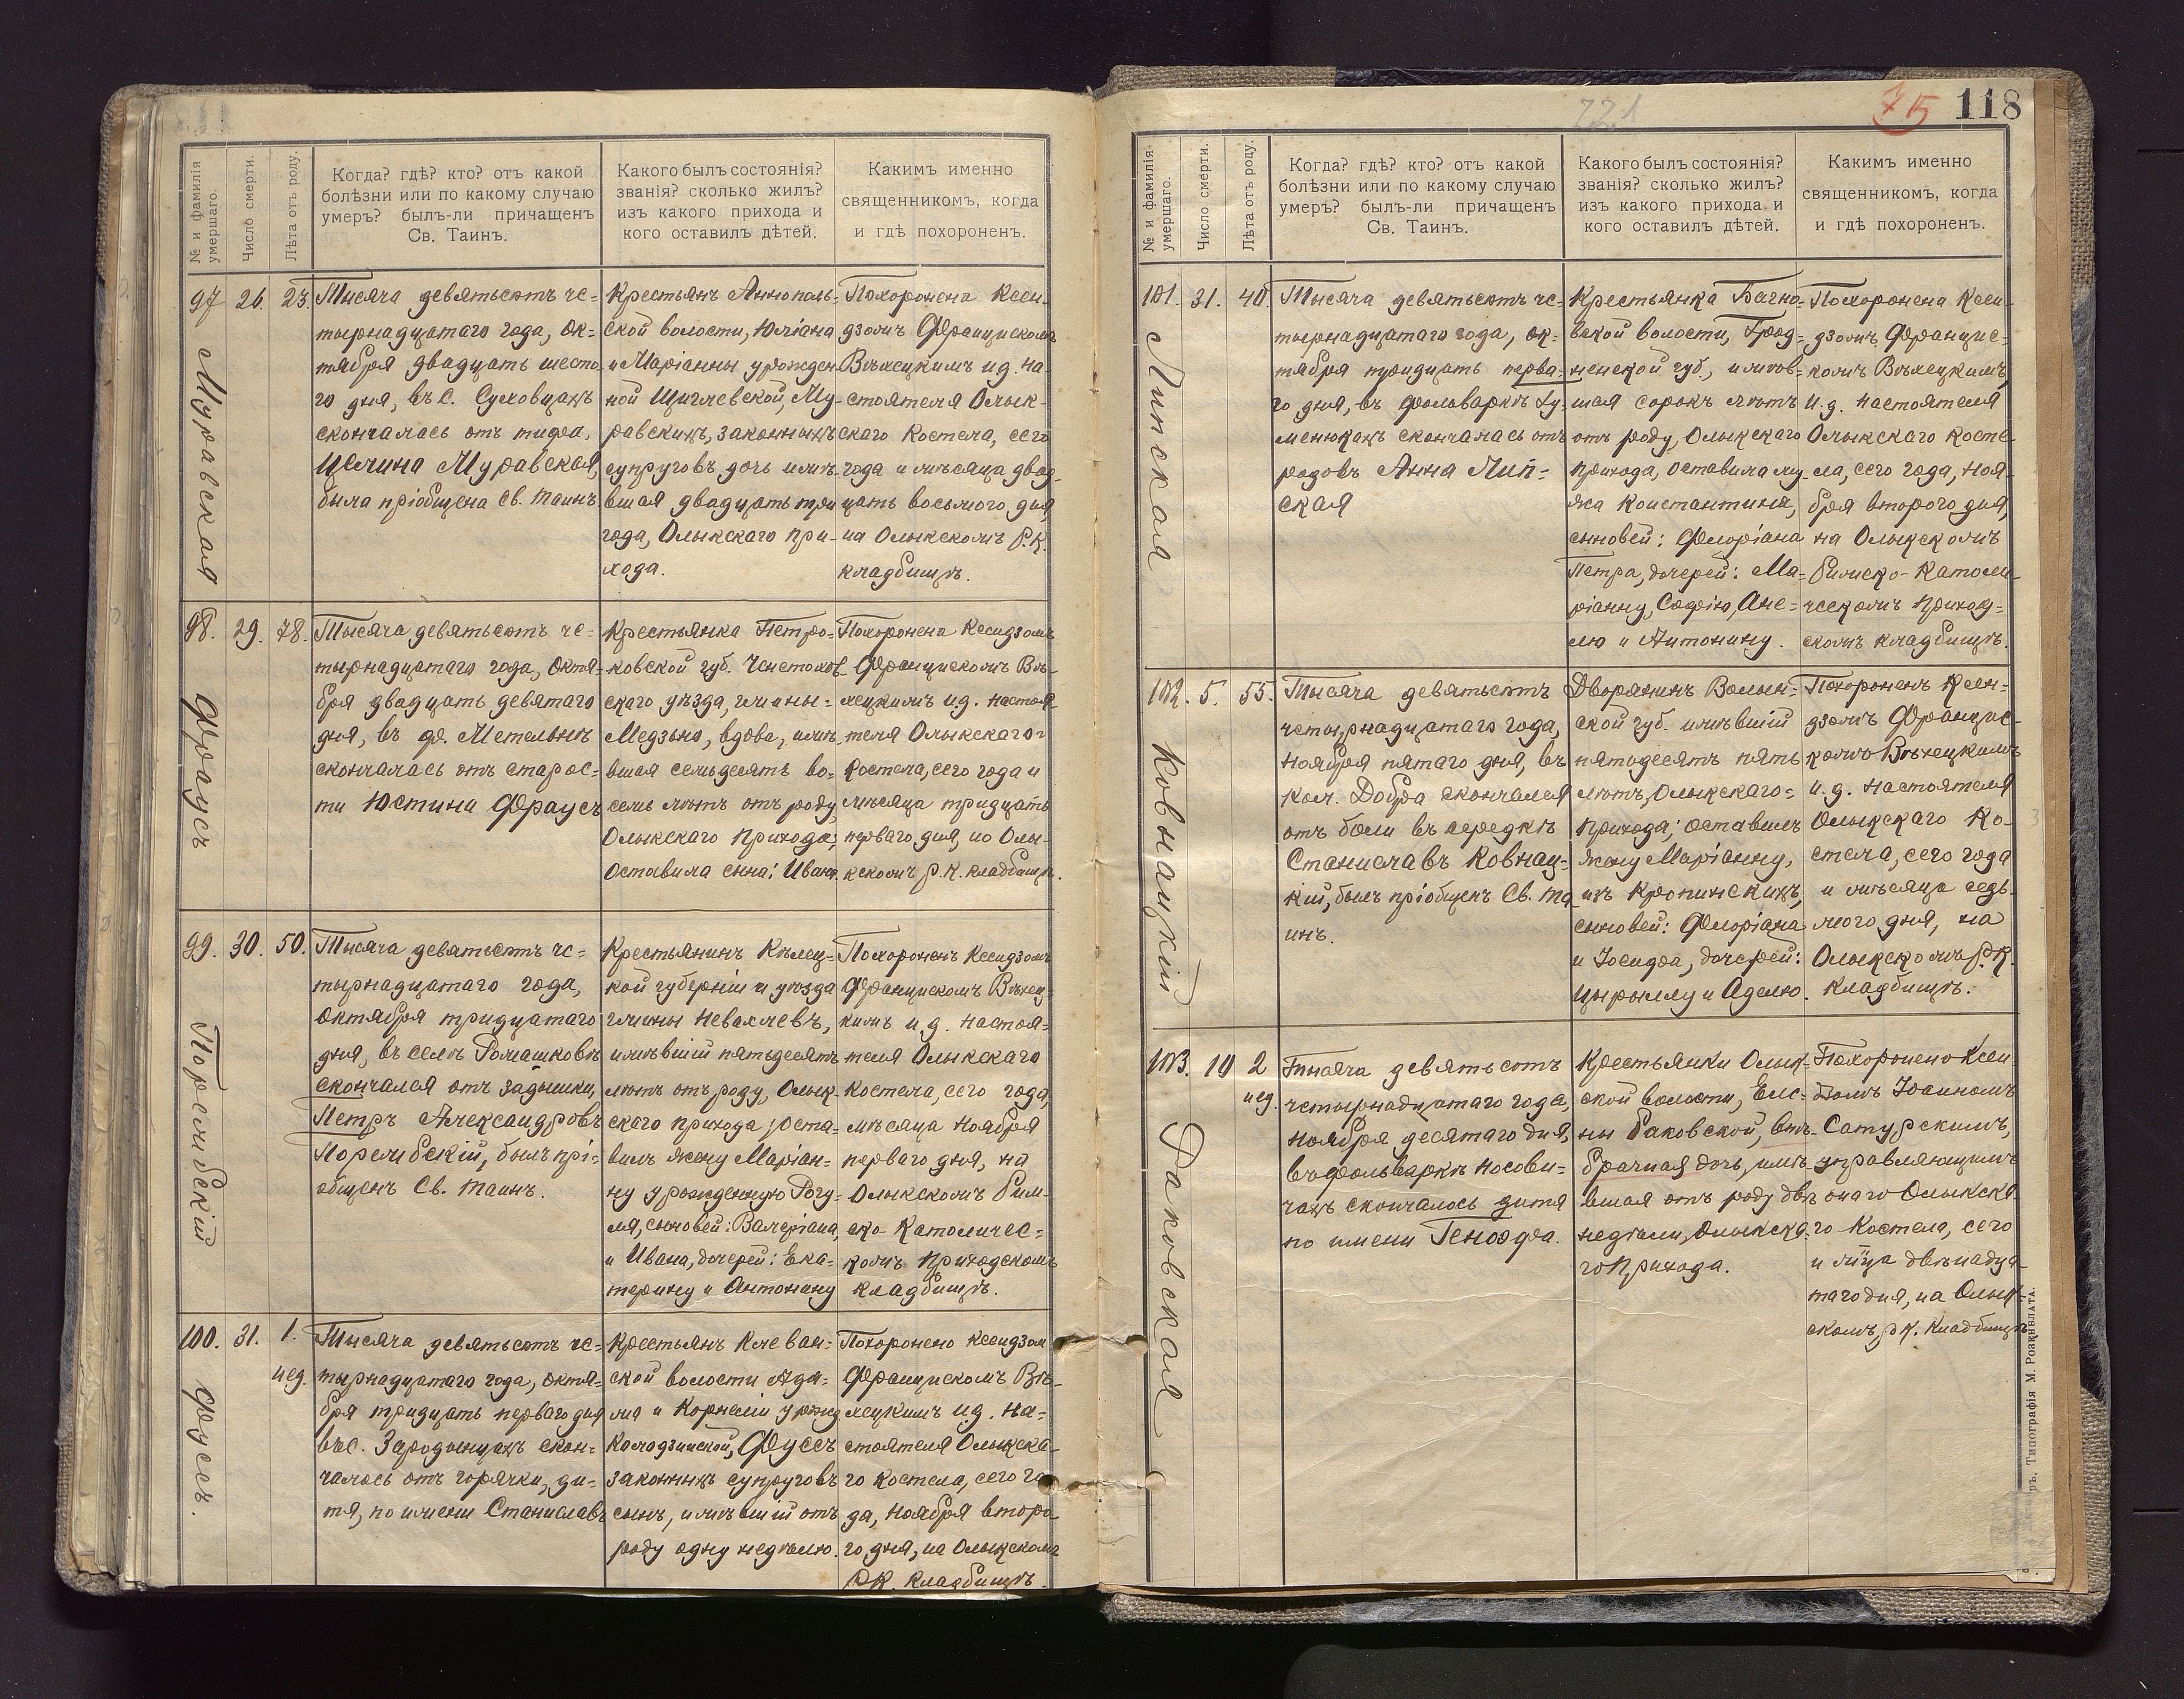 № и фамилія умершаго.
Число смерти.
Лѣта отъ роду.
Когда? гдѣ? кто? отъ какой
болѣзни или по какому случаю
умеръ? былъ-ли причащенъ
Св. Таинъ.
Какого былъ состоянія?
званія? сколько жилъ?
изъ какого прихода и
кого оставилъ дѣтей.
Какимъ именно
священникомъ, когда
и гдѣ похороненъ.
97
Муравская
26.
23.
Тысяча девятьсотъ че-
тырнадцатаго года, ок-
тября двадцать шесто
го дня, въ с. Суховцахъ
скончалась отъ тифа,
Целина Муравская,
была пріобщена Св. Таинъ
Крестьянъ Аннополь-
ской волости, Юліана
и Маріанны урожден
ной Щиглевской, Му-
равскихъ, законныхъ
супруговъ дочь имѣ
вшая двадцать три
года, Олыкскаго при-
хода.
Похоронена Ксен-
дзомъ Францискомъ
Вѣхецкимъ и.д. на-
стоятеля Олык-
скаго Костела, сего
года и мѣсяца двад-
цать восьмого дня,
на Олыкскомъ Р.К.
кладбищѣ.
98.
Фраусъ
29.
78.
Тысяча девятьсотъ че-
тырнадцатаго года, Октя-
бря двадцать девятаго
дня, въ ф. Метельнѣ
скончалась отъ старос-
ти Юстина Фраусъ
Крестьянка Петро-
ковской губ. Ченстохов-
скаго уѣзда, гмины-
Медзьно, вдова, имѣ
вшая семьдесятъ во-
семь лѣтъ отъ роду,
Олыкскаго Прихода;
Оставила сына: Ивана.
Похоронена Ксендзомъ
Францискомъ Вѣ-
хецкимъ и.д. настоя-
теля Олыкскаго-
Костела, сего года и
мѣсяца тридцать
перваго дня, на Олы-
кскомъ р.К. кладбищѣ.
99.
Порембскій
30.
50.
Тысяча девятьсотъ че-
тырнадцатаго года,
Октября тридцатаго
дня, въ селѣ Ромашковѣ
скончался отъ задышки,
Петръ Александровъ
Порембскій, былъ прі-
общенъ Св. Таинъ.
Крестьянинъ Кѣлец-
кой губерніи и уѣзда
гмины Невахлевъ,
имѣвшій пятьдесятъ
лѣтъ отъ роду, Олык-
скаго прихода; оста-
вилъ жену Маріан-
ну урожденную Рогу-
ля, сыновей: Валеріана,
и Ивана, дочерей: Ека-
терину и Антонину
Похороненъ Ксендзомъ
Францискомъ Вѣхец-
кимъ и.д. настоя-
теля Олыкскаго
Костела, сего года,
мѣсяца Ноября
перваго дня, на
Олыкскомъ Рим-
ско-Католичес-
комъ Приходскомъ
кладбищѣ.
100.
Фуссъ.
31.
1.
нед.
Тысяча девятьсотъ че-
тырнадцатаго года, октя-
бря тридцать перваго дня
въ с. Зародынцахъ скон-
чалось отъ горячки, ди-
тя, по имени Станиславъ
Крестьянъ Клеван-
ской волости Ада-
ма и Корнеліи урожд
Колодзинской, Фуссъ
законныхъ супруговъ
сынъ, имѣвшій отъ
роду одну недѣлю.
Похоронено Ксендзом
Францискомъ Вѣ-
хецкимъ и.д. на-
стоятеля Олыкска-
го Костела, сего го
да, Ноября второ
го дня, на Олыкском
Р.К. кладбищѣ.
721
75
118
№ и фамилія умершаго.
Число смерти.
Лѣта отъ роду.
Когда? гдѣ? кто? отъ какой
болѣзни или по какому случаю
умеръ? былъ-ли причащенъ
Св. Таинъ.
Какого былъ состоянія?
званія? сколько жилъ?
изъ какого прихода и
кого оставилъ дѣтей.
Какимъ именно
священникомъ, когда
и гдѣ похороненъ.
101.
Липская
31.
40.
Тысяча девятьсотъ че-
тырнадцатаго года, ок-
тября тридцать перва-
го дня, въ фольваркѣ Гу-
менюкахъ скончалась отъ
родовъ Анна Лип-
ская
Крестьянка Багно-
вской волости, Грод-
ненской губ., имѣв-
шая сорокъ лѣтъ
отъ роду, Олыкскаго
прихода, оставила му
жа Константина,
сыновей: Флоріана
Петра, дочерей: Ма-
ріанну, Софію, Ане-
лю и Антонину.
Похоронена Ксен-
дзомъ Францис-
комъ Вѣхецкимъ,
и.д. настоятеля
Олыкскаго Косте-
ла, сего года, Ноя-
бря второго дня,
на Олыкскомъ
Римско-Католи-
ческомъ приход-
скомъ кладбищѣ.
102.
Ковнацкій
5.
55.
Тысяча девятьсотъ
четырнадцатаго года,
Ноября пятаго дня, въ
кол. Добра скончался
отъ боли въ середкѣ
Станиславъ Ковнац-
кій, былъ пріобщенъ Св. Та
инъ.
Дворянинъ Волын-
ской губ. имѣвшій
пятьдесятъ пять
лѣтъ, Олыкскаго-
прихода; оставилъ
жену Маріанну,
изъ Кропинскихъ,
сыновей: Флоріана
и Іосифа, дочерей:
Цырыллу и Аделю.
Похороненъ Ксен-
дзомъ Францис-
комъ Вѣхецкимъ
и.д. настоятеля
Олыкскаго Ко-
стела, сего года
и мѣсяца седь-
мого дня, на
Олыкскомъ Р.К.
кладбищѣ.
103.
Раковская
10
2
нед.
Тысяча девятьсотъ
четырнадцатаго года,
Ноября десятаго дня,
въ фольваркѣ Носови-
чахъ скончалось дитя
по имени Геновфа.
Крестьянки Олык-
ской волости, Еле-
ны Раковской, внѣ-
брачная дочь, имѣ-
вшая отъ роду двѣ
недѣли, Олыкска-
го Прихода.
Похоронено Ксен-
дзомъ Іоанномъ
Сатурскимъ,
управляющимъ
онаго Олыкска-
го Костела, сего
и м̃ца двѣнадца-
таго дня, на Олык-
скомъ р.К. Кладбищѣ
ръ, Типографія М. Розенблата.